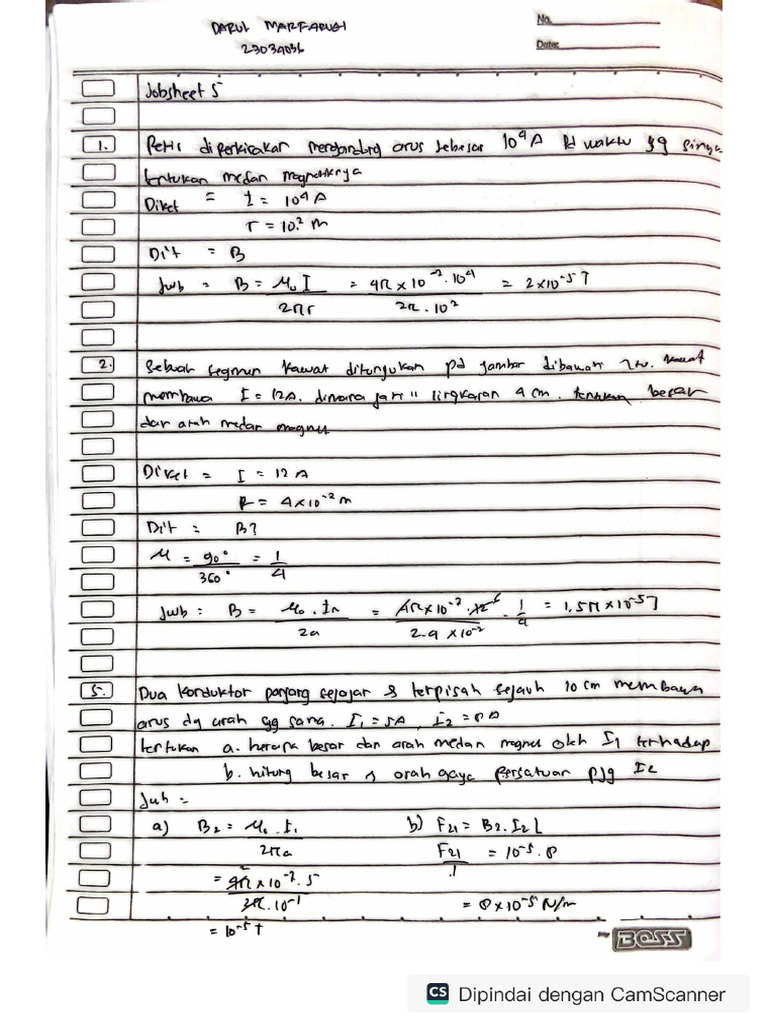 DARUL MARFARUGI
23034036
No.
Date:
Jobsheet 5
1. Petir diperkirakan mengandung arus sebesar 10⁴ A Pd waktu yg singka
tentukan medan magnetiknya
Diket = I = 10⁴ A
r = 10² m
Dit = B
Jwb = B = μ₀ I / 2πr = 4π × 10⁻⁷ . 10⁴ / 2π . 10² = 2 × 10⁻⁵ T
2. Sebuah segmen kawat ditunjukan pd gambar dibawah Kawat
membawa I = 12A. dimana jari" lingkaran 4 cm. tentukan besar
dan arah medan magnet
Diket = I = 12 A
R = 4 × 10⁻² m
Dit : B?
M = 90° / 360° = 1/4
Jwb : B = μ₀ . In / 2a = 4π × 10⁻⁷ . 12⁶ / 2.4 × 10⁻² . 1/4 = 1,5π × 10⁻⁵ T
5. Dua konduktor panjang sejajar & terpisah sejauh 10 cm membawa
arus dg arah yg sama. I₁ = 5A, I₂ = 8 A
tentukan a. berapa besar dan arah medan magnet oleh I₁ terhadap
b. hitung besar & arah gaya Persatuan pjg I₂
Jwb =
a) B₂ = μ₀ . I₁ / 2πa
= 4π² × 10⁻⁷ . 5 / 2π . 10⁻¹
= 10⁻⁵ T
b) F₂₁ = B₂ . I₂ L
F₂₁ / l = 10⁻⁵ . 8
= 8 × 10⁻⁵ N/m
BOSS
CS Dipindai dengan CamScanner